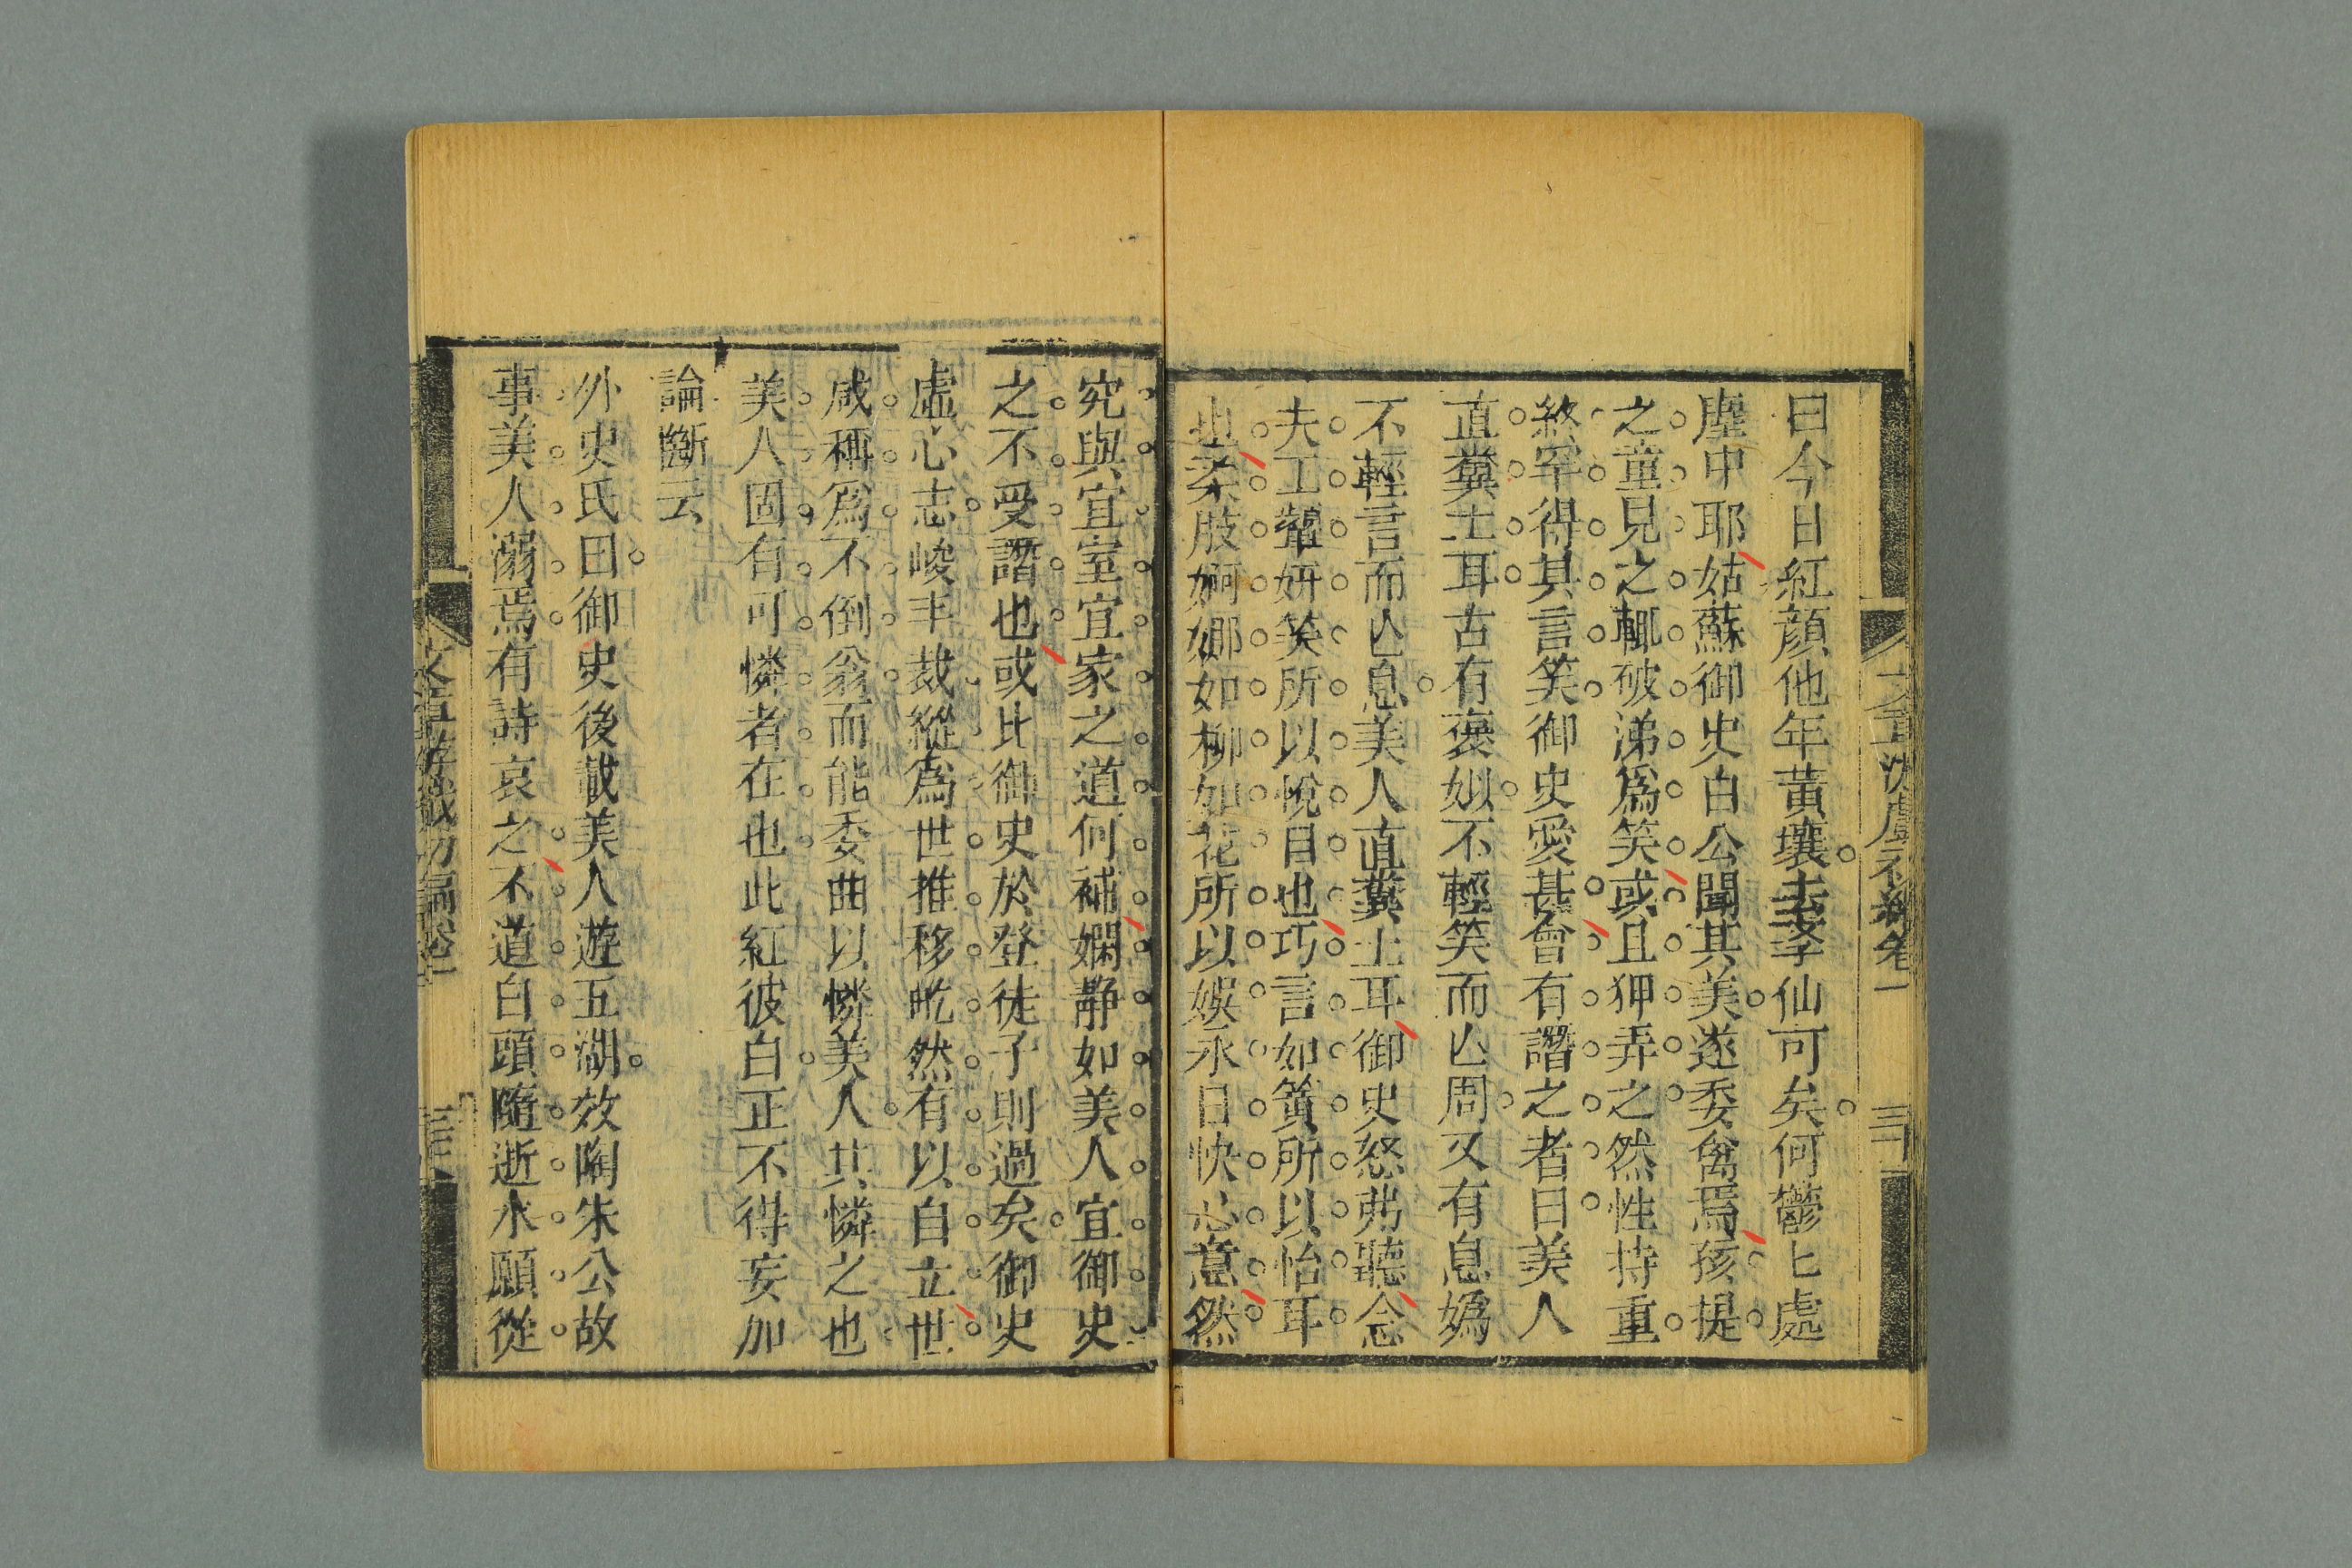 曰今日紅顔他年黃壤去李仙可矣何鬱匕處
塵中耶姑蘇御史白公聞其美遂委禽焉孩提
之童見之輒破涕爲笑或且狎弄之然性持重
終罕得其言笑御史愛甚會有譖之者曰美人
直糞土耳古有褒姒不輕笑而亾周又有息嬀
不輕言而亾息美人直糞土耳御史怒弗聽念
夫工顰妍笑所以悅目也巧言如簧所以怡耳
也柔肢婀娜如柳如花所以娛永日快心意然
究與宜室宜家之道何補嫻靜如美人宜御史
之不受譖也或比御史於登徒子則過矣御史
虛心志峻丰裁縱爲世推移屹然有以自立世
咸稱爲不倒翁而能委曲以憐美人共憐之也
美人固有可憐者在也此紅彼白正不得妄加
論斷云
外史氏曰御史後載美人遊五湖效陶朱公故
事美人溺焉有詩哀之不道白頭隨逝水願從
文章游戲初編卷一